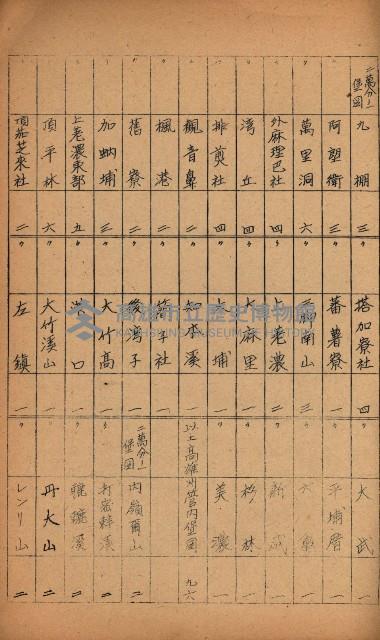 二萬分ノ一堡圖 九棚 三
〃 阿塱衛 三
〃 萬里洞 六
〃 外麻理巴社 四
〃 湾丘 四
〃 排剪社 四
〃 觀音鼻 二
〃 楓港 二
〃 舊寮 二
〃 加蚋埔 三
〃 上老濃東部 五
〃 頂平林 六
〃 頂笳芝來社 二
〃 塔加寮社 四
〃 蕃薯寮 一
南山 三
老濃 二
麻里 一
埔 一
知本溪 一
社 一
子 一
〃 大竹高 一
口 一
〃 大竹溪山 一
〃 左鎮 一
〃 大武 一
〃 平埔厝 一
一
〃 新 一
〃 杉林 一
〃 美濃 一
以上高雄州管内堡圖 九六
二萬分ノ一堡圖 内嶺爾山 二
二
溪 二
〃 丹大山 二
〃 レンリ山 二
高雄市立歷史博物館
KAOHSIUNG MUSEUM OF HISTORY